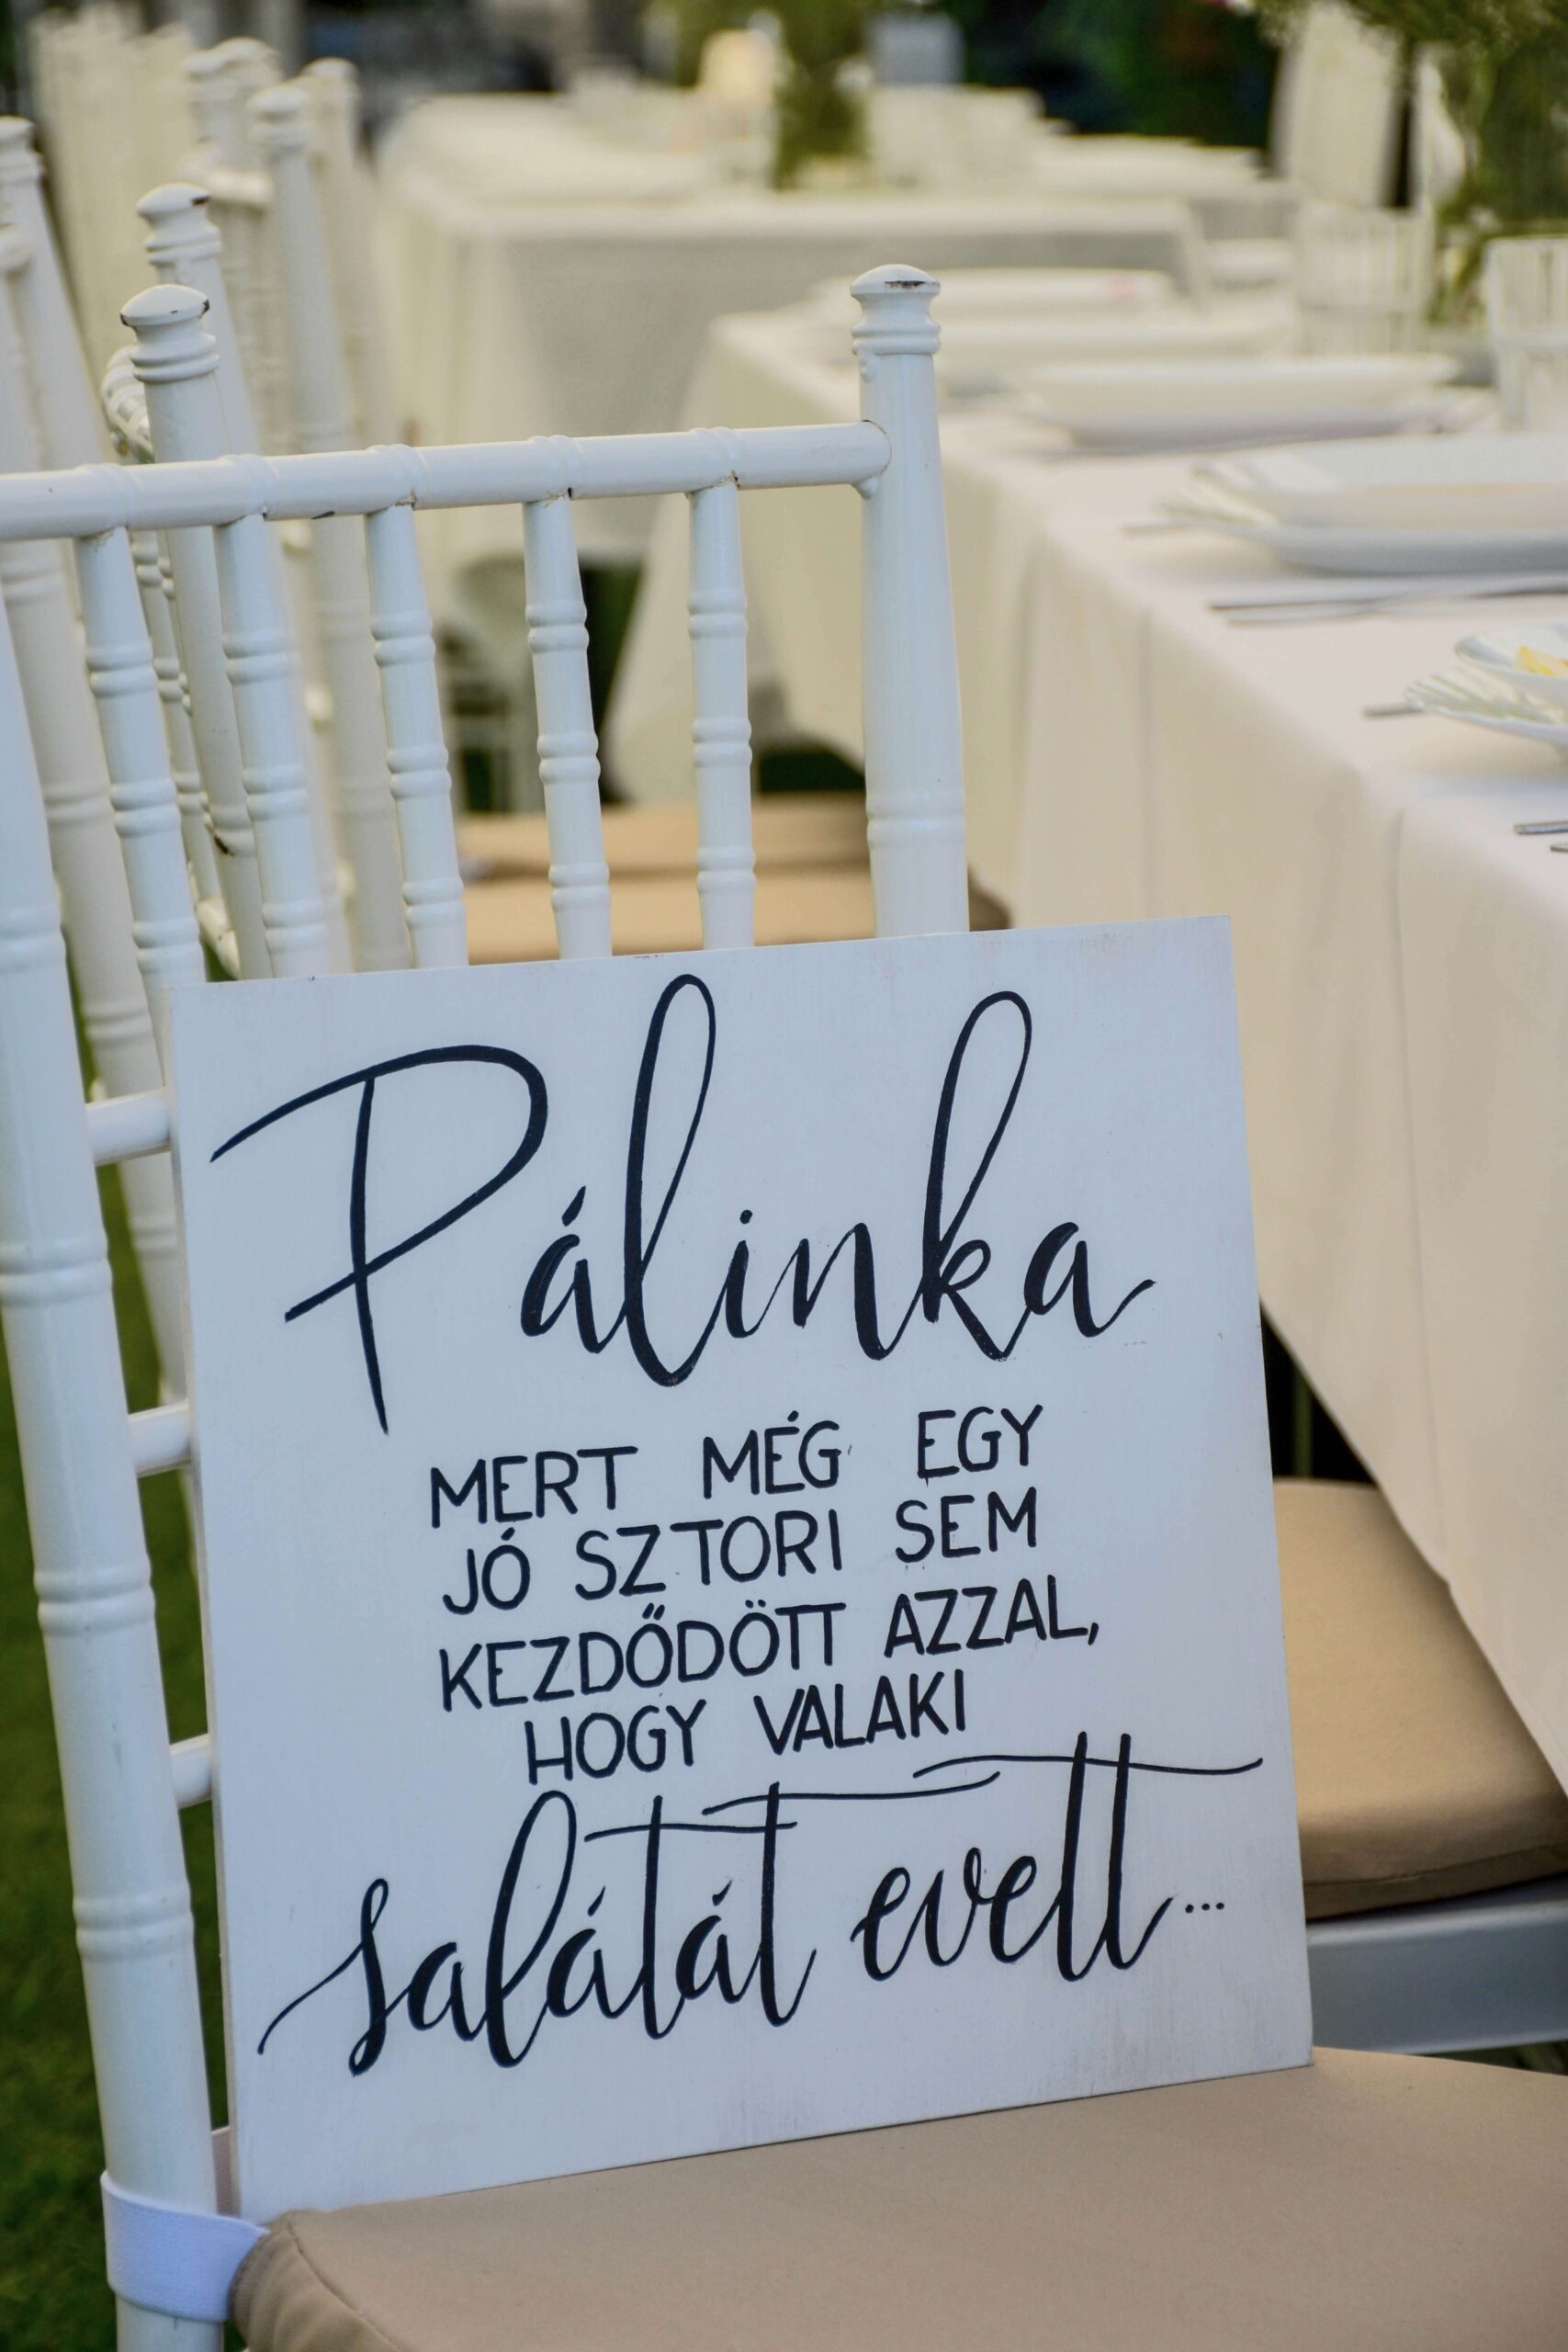 Pálinka
MERT MÉG EGY
JÓ SZTORI SEM
KEZDŐDÖTT AZZAL,
HOGY VALAKI
salátát evett...